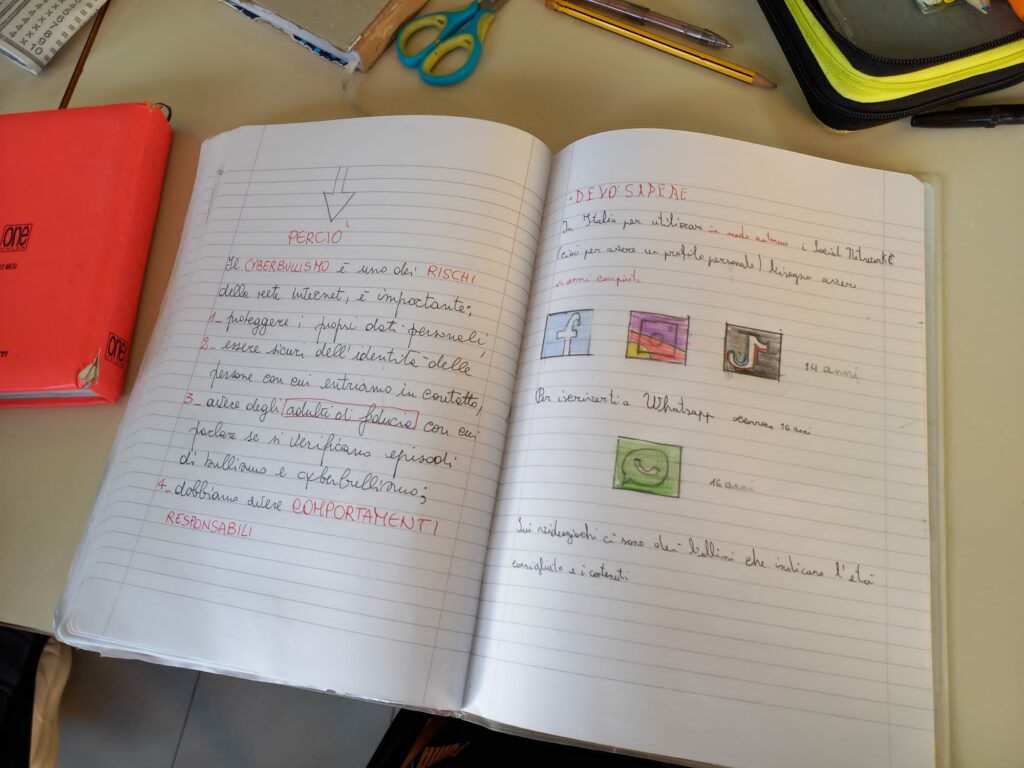 PERCIÒ
Il CYBERBULLISMO è uno dei RISCHI
della rete internet, è importante:
1_ proteggere i propri dati personali;
2_ essere sicuri dell'identità delle
persone con cui entriamo in contatto;
3_ avere degli adulti di fiducia con cui
parlare se si verificano episodi
di bullismo e cyberbullismo;
4_ dobbiamo avere COMPORTAMENTI
RESPONSABILI
• DEVO SAPERE
In Italia per utilizzare in modo autonomo i Social
(cioè per avere un profilo personale) bisogna avere
14 anni compiuti
14 anni
Per iscriversi a Whatsapp occorrono 16 anni
16 anni
Sui videogiochi ci sono dei bollini che indicano l'età
consigliata e i contenuti
one
one